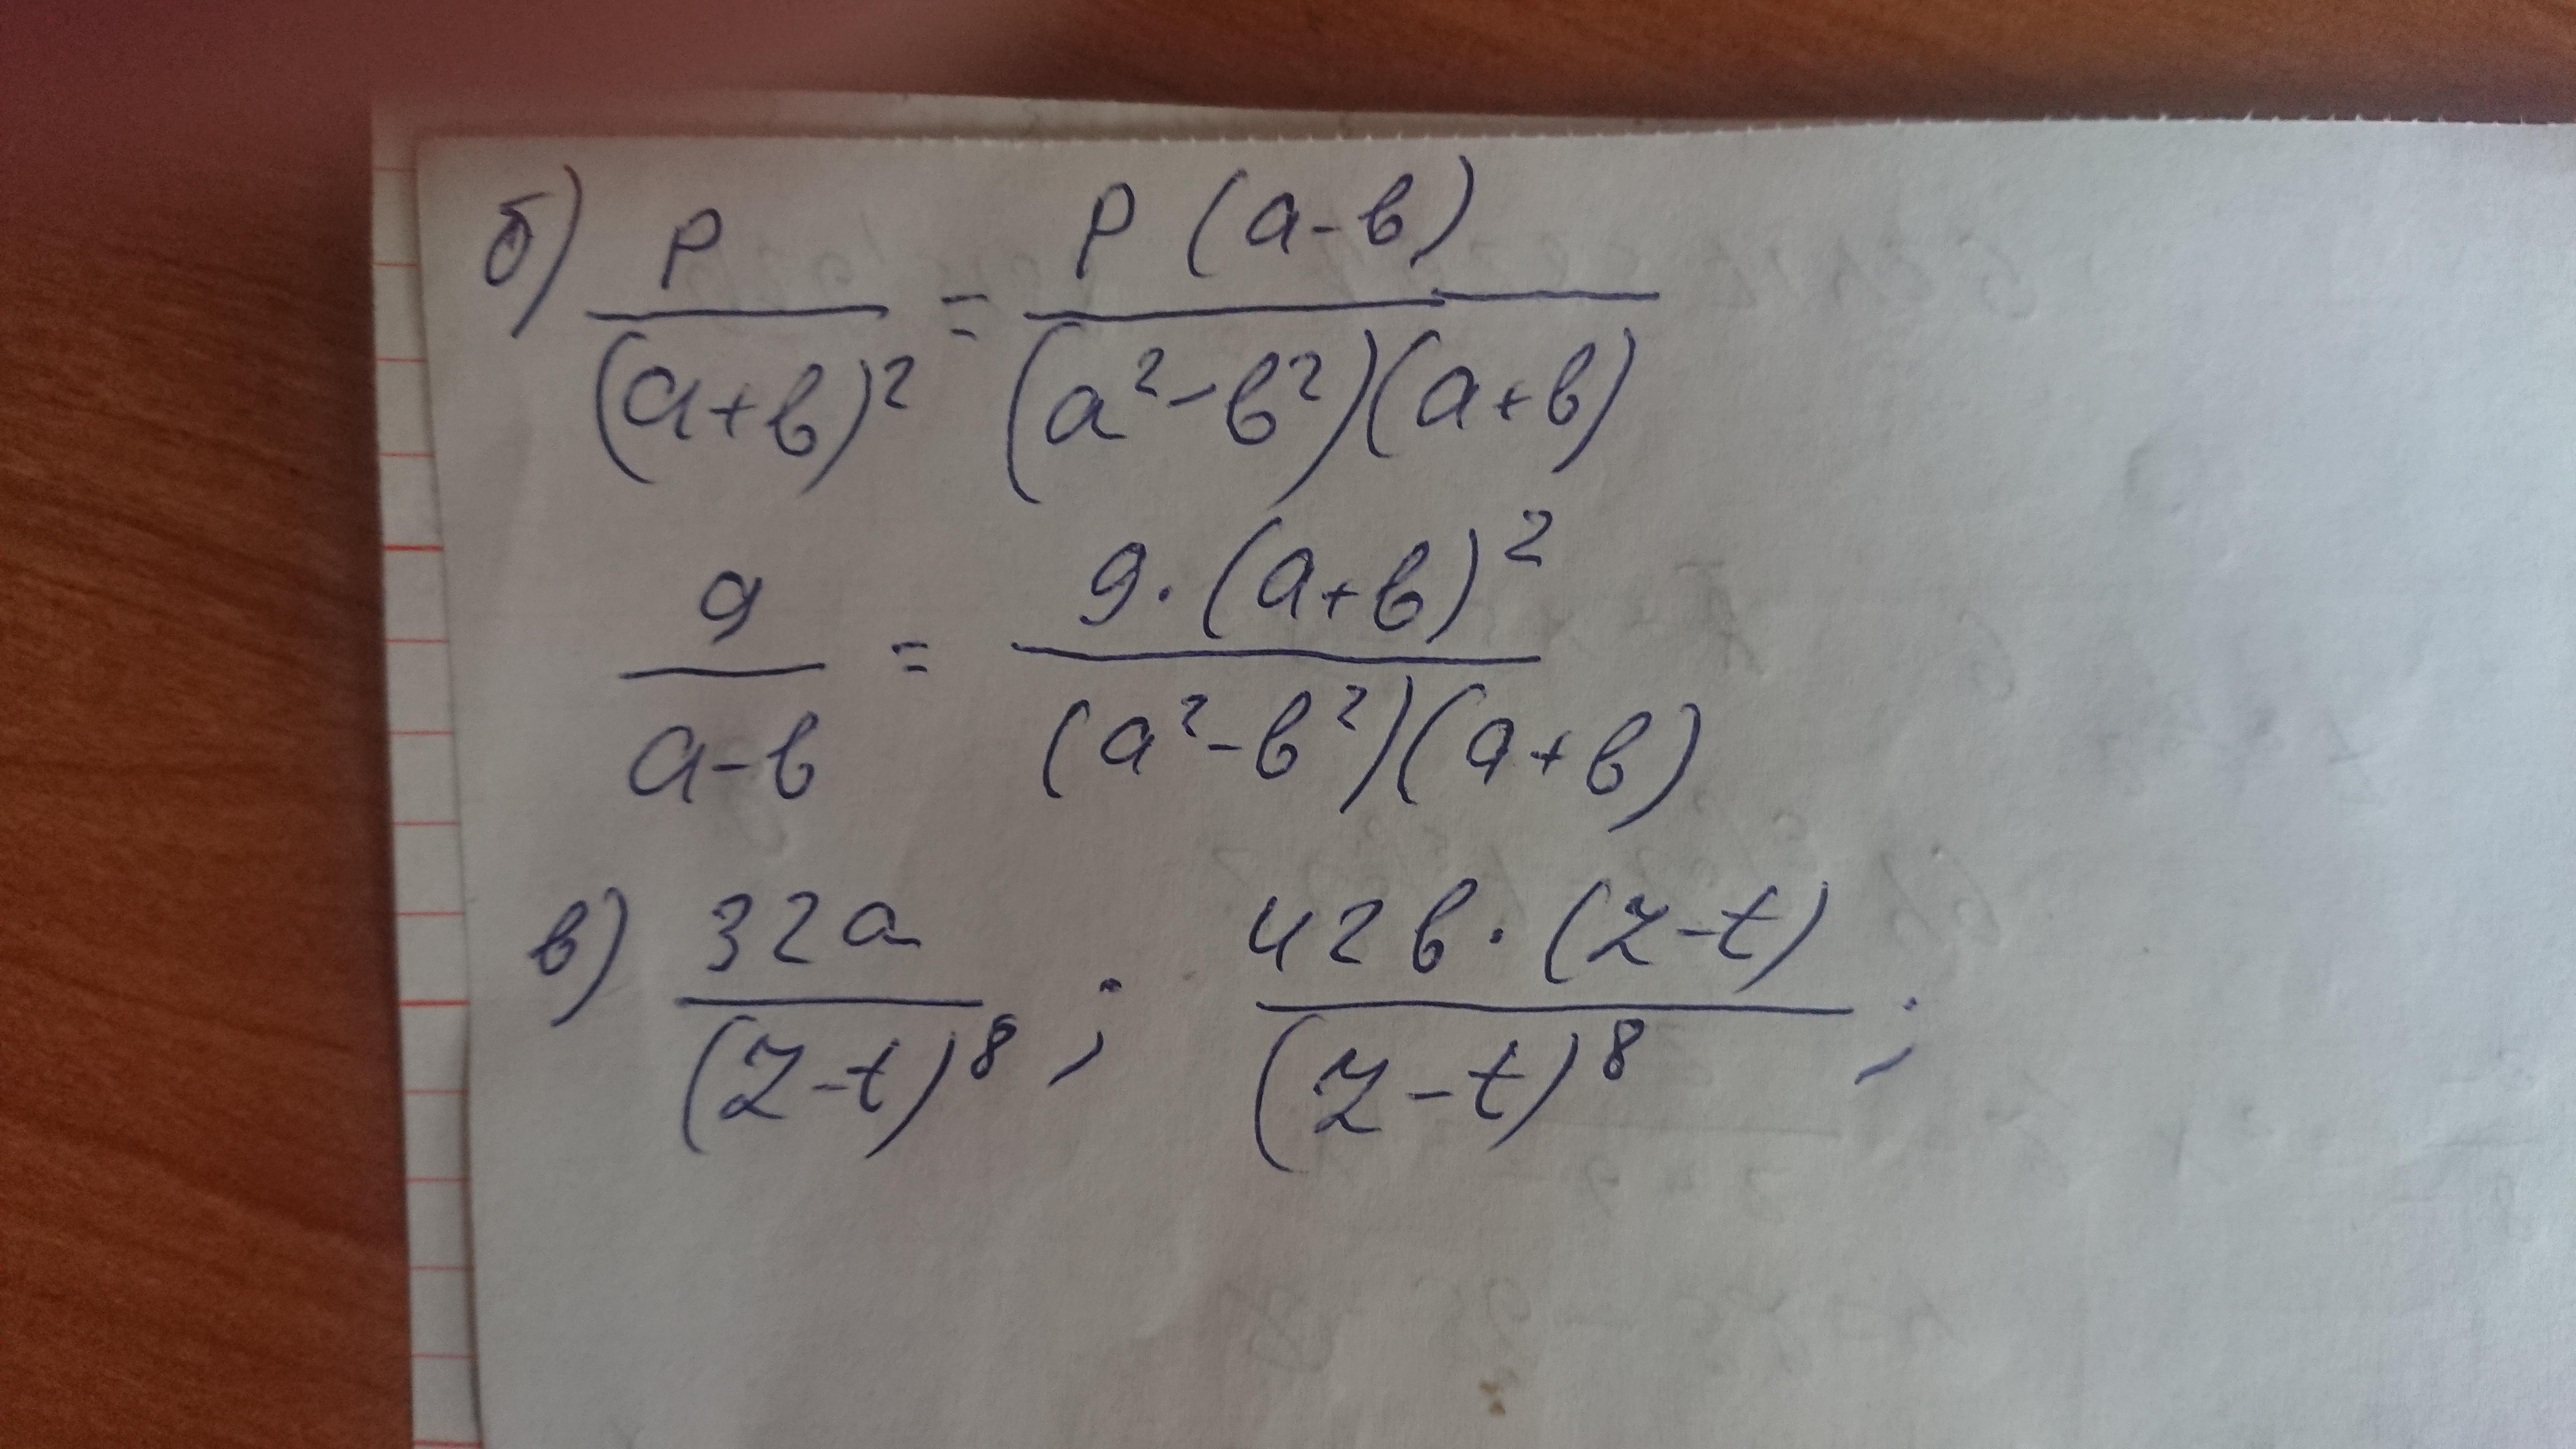 б) p/(a+b)² = p(a-b)/(a²-b²)(a+b)
9/a-b = 9·(a+b)²/(a²-b²)(a+b)
в) 32a/(z-t)⁸ ; 42b·(z-t)/(z-t)⁸ ;